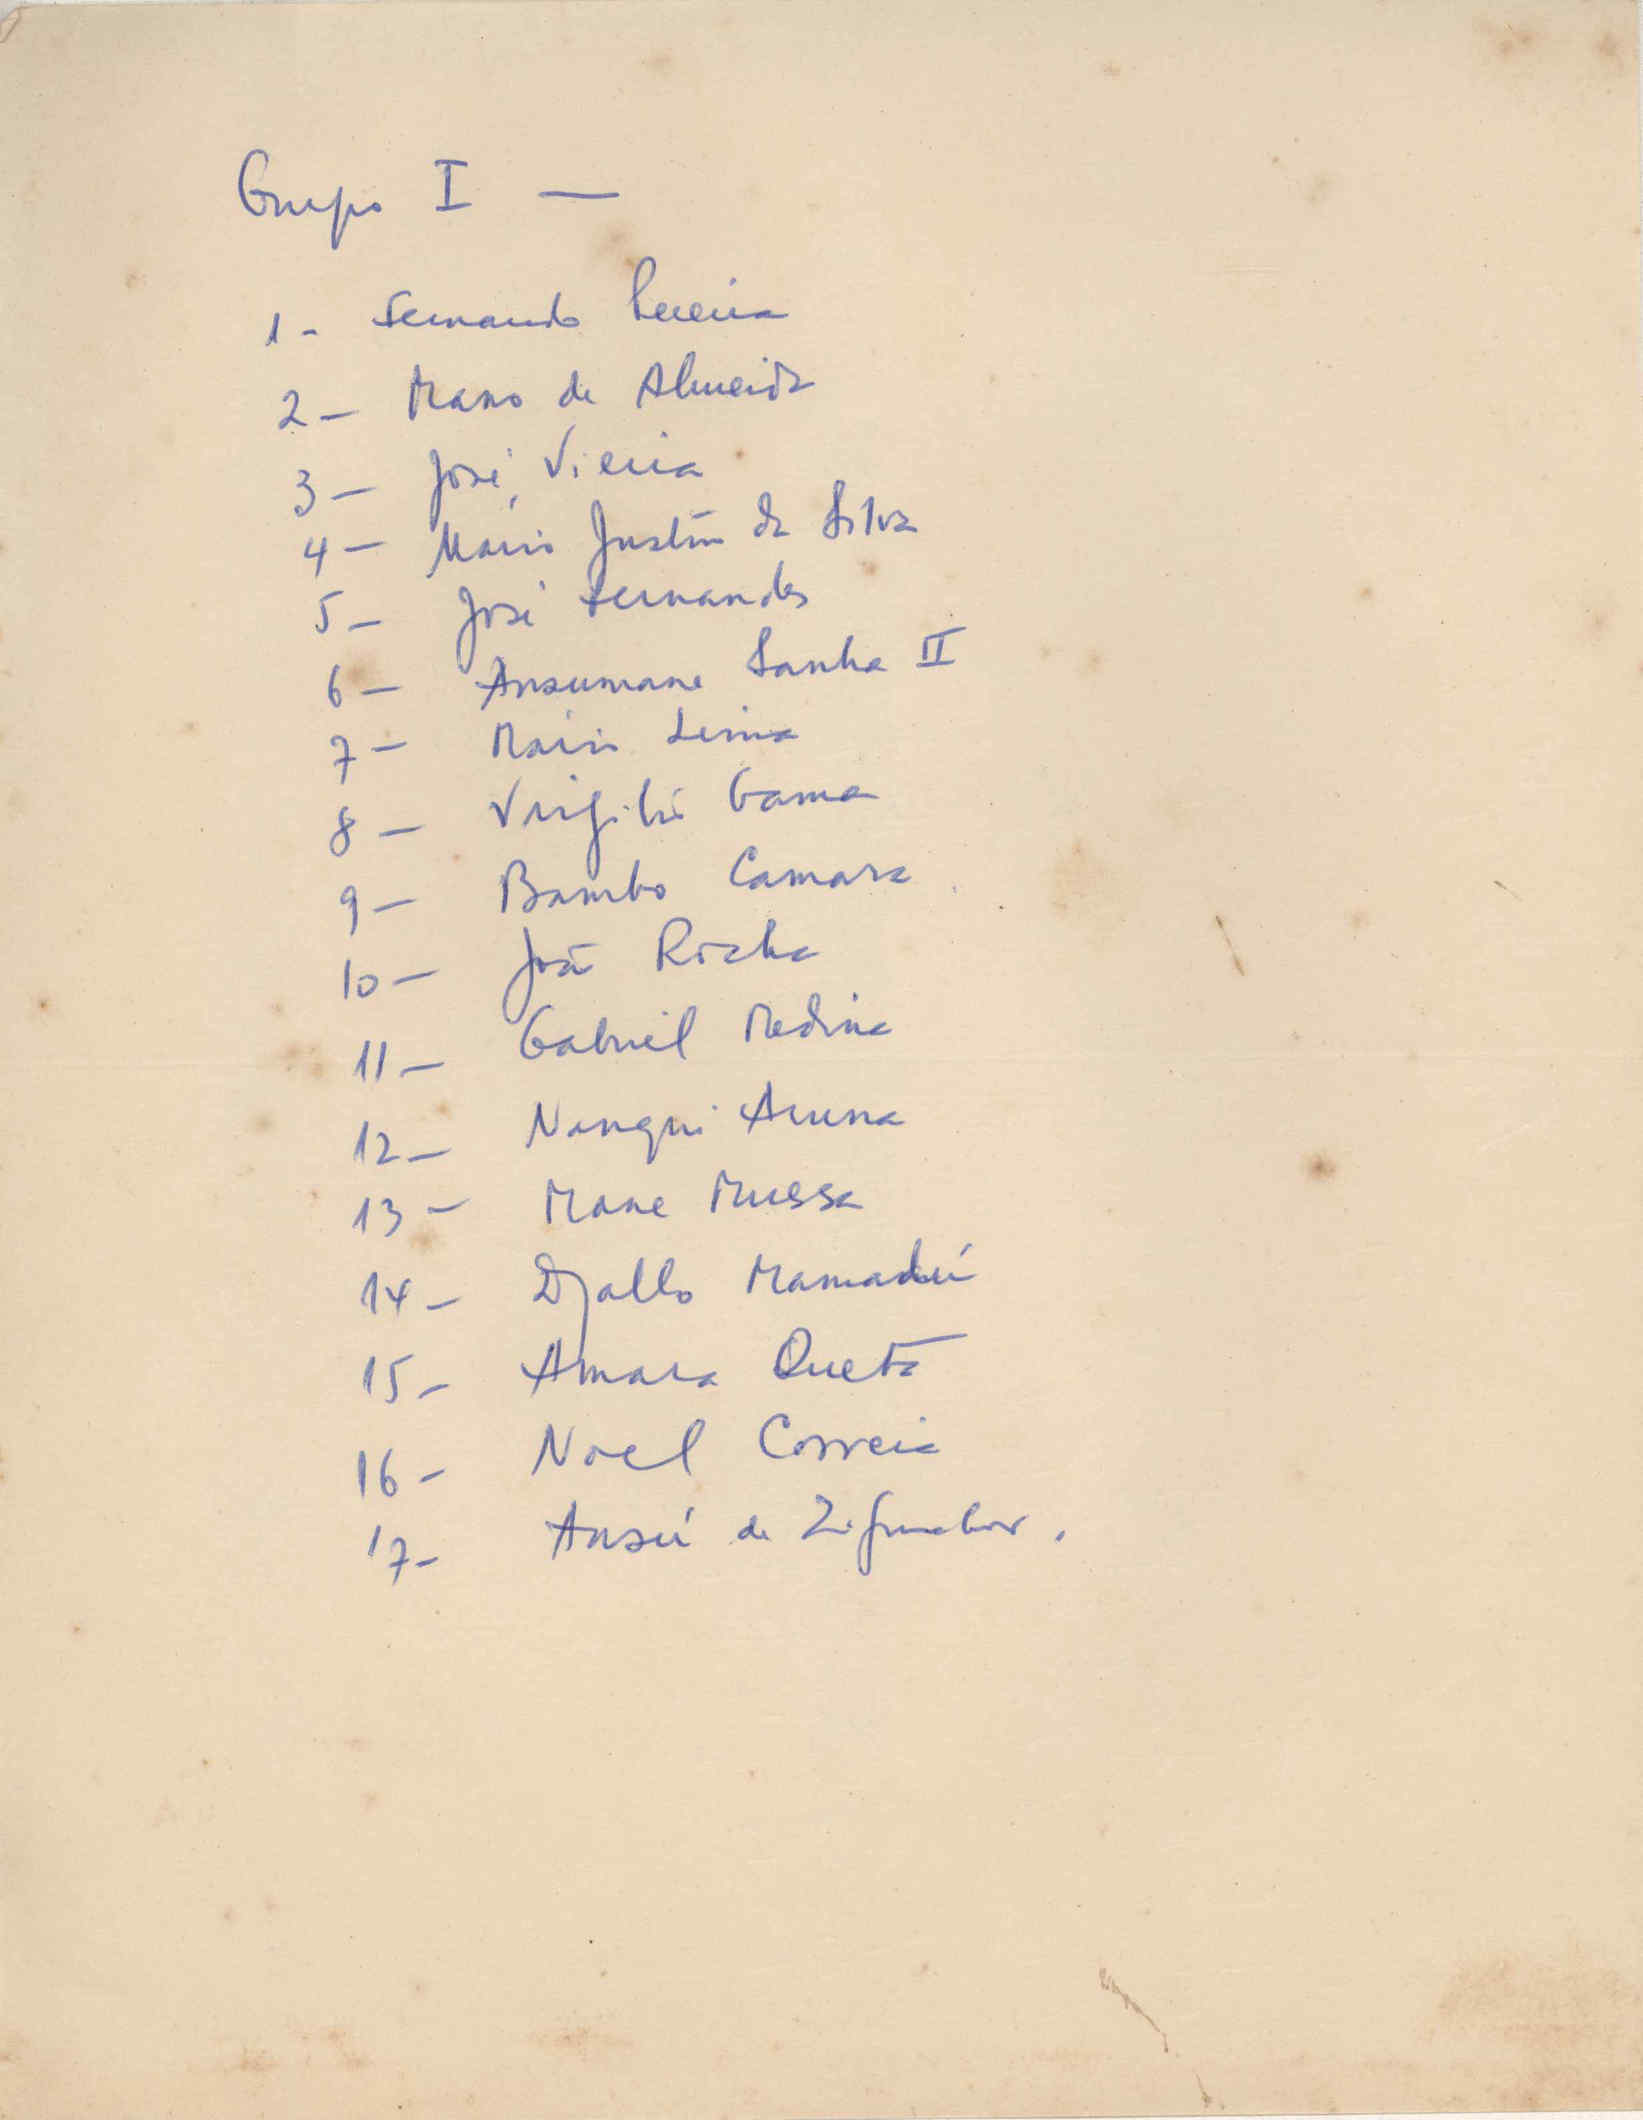 Grupo I —
1 - Fernando Pereira
2 - Mano de Almeida
3 - José Vieira
4 - Mário Justino da Silva
5 - José Fernandes
6 - Ansumane Sanha II
7 - Mário Lima
8 - Virgilio Gama
9 - Bambo Camara
10 - João Rocha
11 - Gabriel Medina
12 - Nanqui Aruna
13 - Mane Mussa
14 - Djallo Mamadú
15 - Amara Queta
16 - Noel Correia
17 - Ansú de Zifunchor.